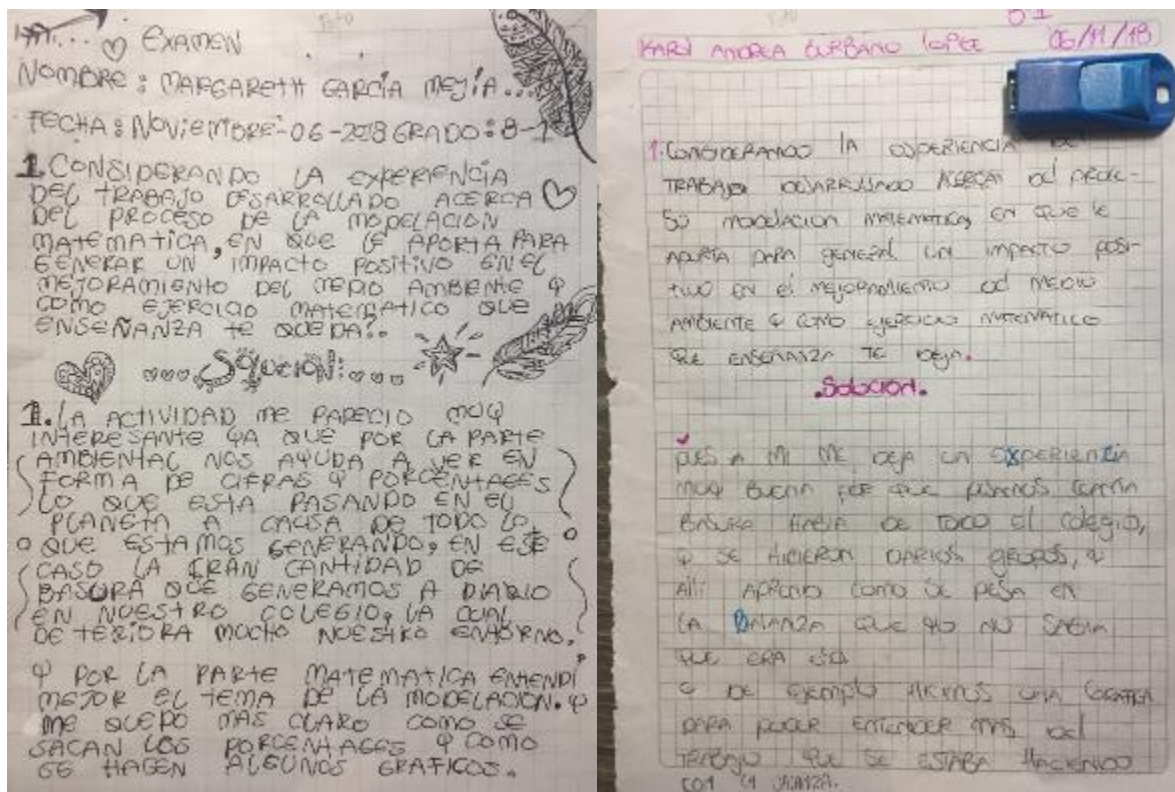 EXAMEN
NOMBRE: MARGARETH GARCÍA MEJÍA...
FECHA: NOVIEMBRE-06-2018 GRADO: 8-1
1. CONSIDERANDO LA EXPERIENCIA
DEL TRABAJO DESARROLLADO ACERCA
DEL PROCESO DE LA MODELACION
MATEMATICA, EN QUE LE APORTA PARA
GENERAR UN IMPACTO POSITIVO EN EL
MEJORAMIENTO DEL MEDIO AMBIENTE Y
COMO EJERCICIO MATEMATICO QUE
ENSEÑANZA TE QUEDA?.
...SOLUCIÓN:...
1. LA ACTIVIDAD ME PARECIO MUY
INTERESANTE YA QUE POR LA PARTE
AMBIENTAL NOS AYUDA A VER EN
FORMA DE CIFRAS Y PORCENTAGES
LO QUE ESTA PASANDO EN EL
PLANETA A CAUSA DE TODO LO
QUE ESTAMOS GENERANDO, EN ESTE
CASO LA GRAN CANTIDAD DE
BASURA QUE GENERAMOS A DIARIO
EN NUESTRO COLEGIO, LA CUAL
DETERIORA MUCHO NUESTRO ENTORNO.
Y POR LA PARTE MATEMATICA ENTENDI
MEJOR EL TEMA DE LA MODELACION. Y
ME QUEDO MAS CLARO COMO SE
SACAN LOS PORCENTAGES Y COMO
SE HACEN ALGUNOS GRAFICOS.
KAROL ANDREA BURBANO LOPEZ 06/11/18
1. CONSIDERANDO LA EXPERIENCIA DE
TRABAJO DESARRULLADO ACERCA del PROCE-
SO MODELACION MATEMATICA, EN QUE le
APORTA PARA GENERAL UN IMPACTO POSI-
TIVO EN el MEJORAMIENTO del MEDIO
AMBIENTE Y COMO EJERCICIO MATEMATICO
QUE ENSEÑANZA TE DEJA.
.Solucion.
PUES A MI ME DEJA UN EXPERIENZIA
MUY BUENA POR QUE PESAMOS CUANTA
BASURA HABIA DE TODO El COLEGIO,
Y SE HICIERON VARIOS GRUPOS, Y
Alli APRENDI COMO SE PESA EN
LA BALANZA QUE YO NO SABIA
QUE ERA ESO
Y DE EJEMPLO HICIMOS UNA GRAFICA
PARA PODER ENTENDER MAS del
TRABAJO QUE SE ESTABA HACIENDO
CON LA BALANZA.